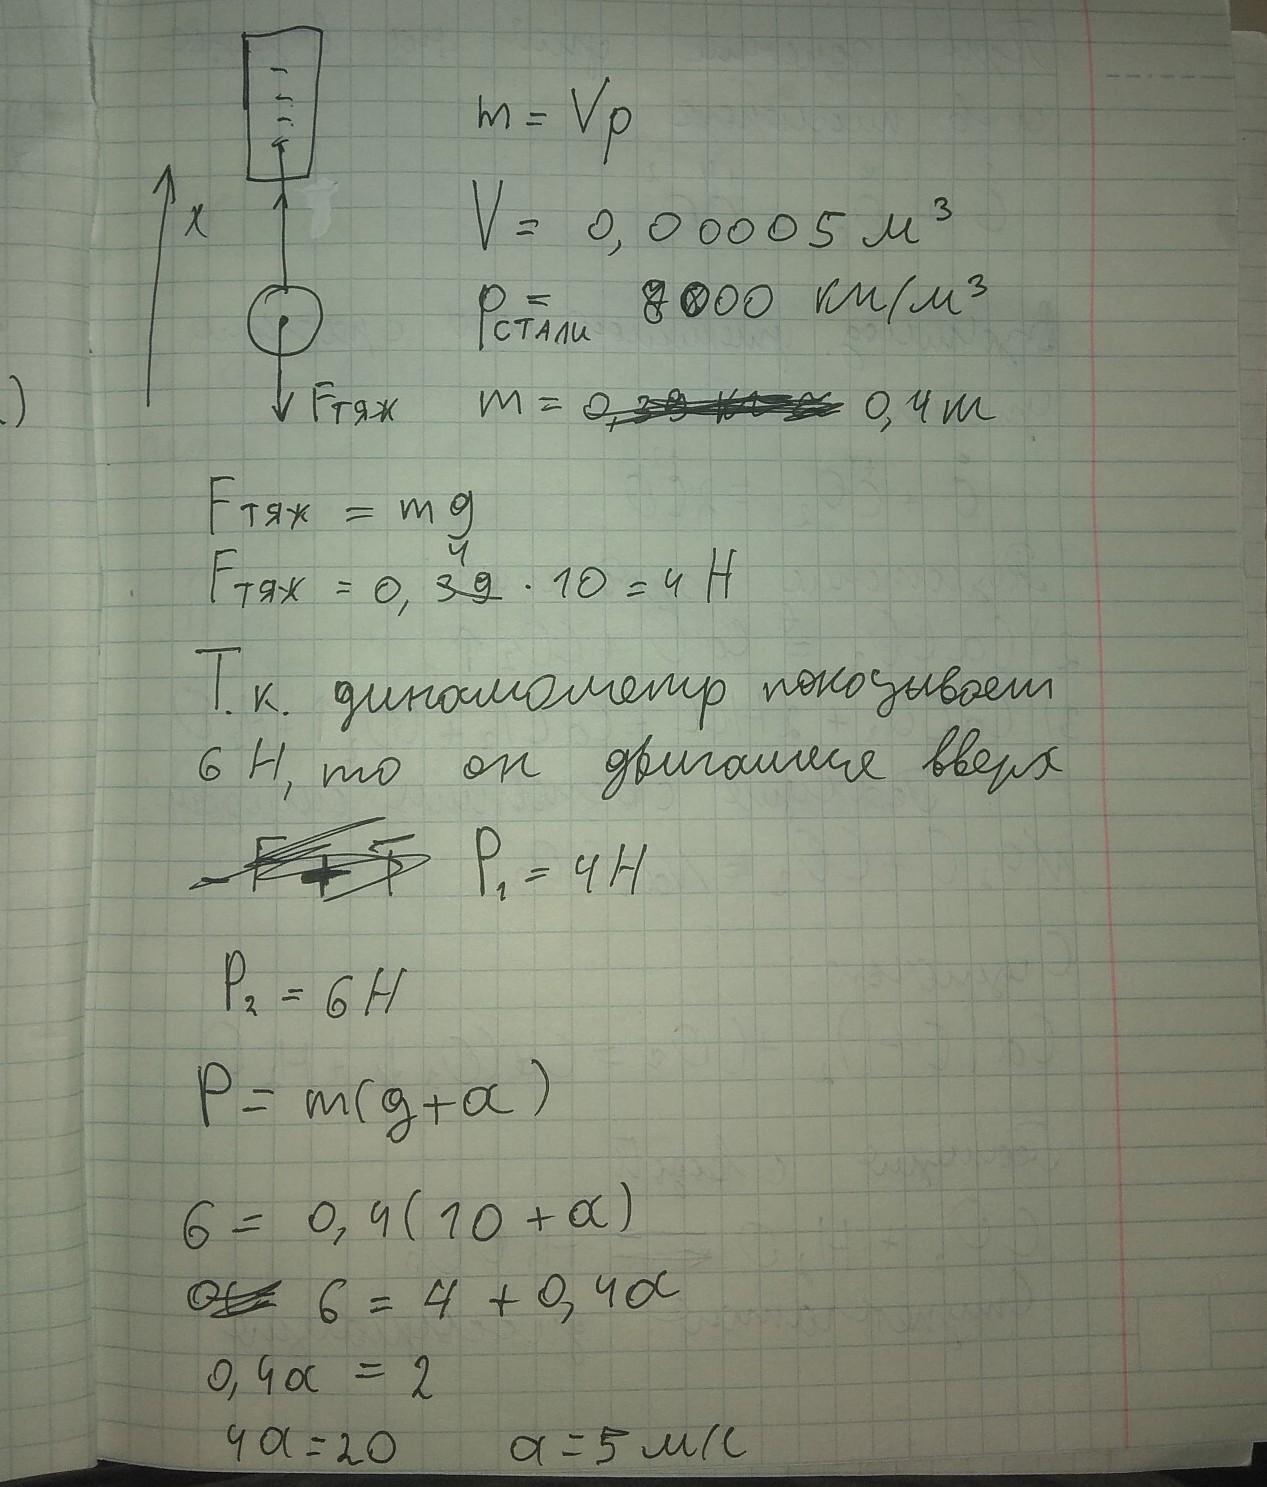 m = Vρ
x
V = 0,00005 м³
ρстали = 8000 км/м³
.)
Fтяж
m = 0,4 m
Fтяж = mg
4
Fтяж = 0,39 · 10 = 4 Н
Т.к. динамометр показывает
6 Н, то он двигался вверх
P₁ = 4 Н
P₂ = 6 Н
P = m(g+a)
6 = 0,4(10 + a)
6 = 4 + 0,4a
0,4a = 2
4a = 20 a = 5 м/с